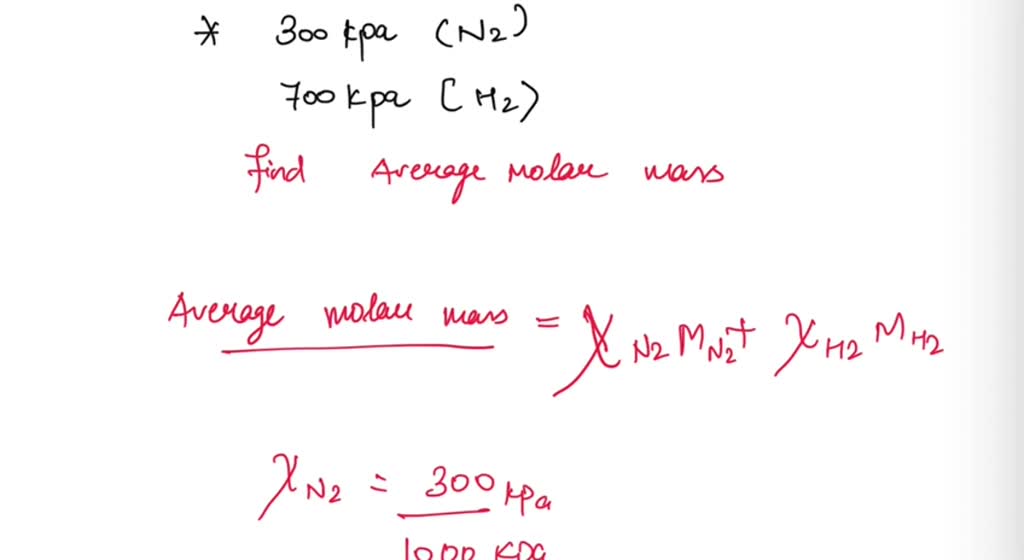 * 300 kpa (N2)
700 kpa [H2)
find Average molar mass
Average molar mass = χN2 MN2 + χH2 MH2
χN2 = 300 kpa
1000 KPa